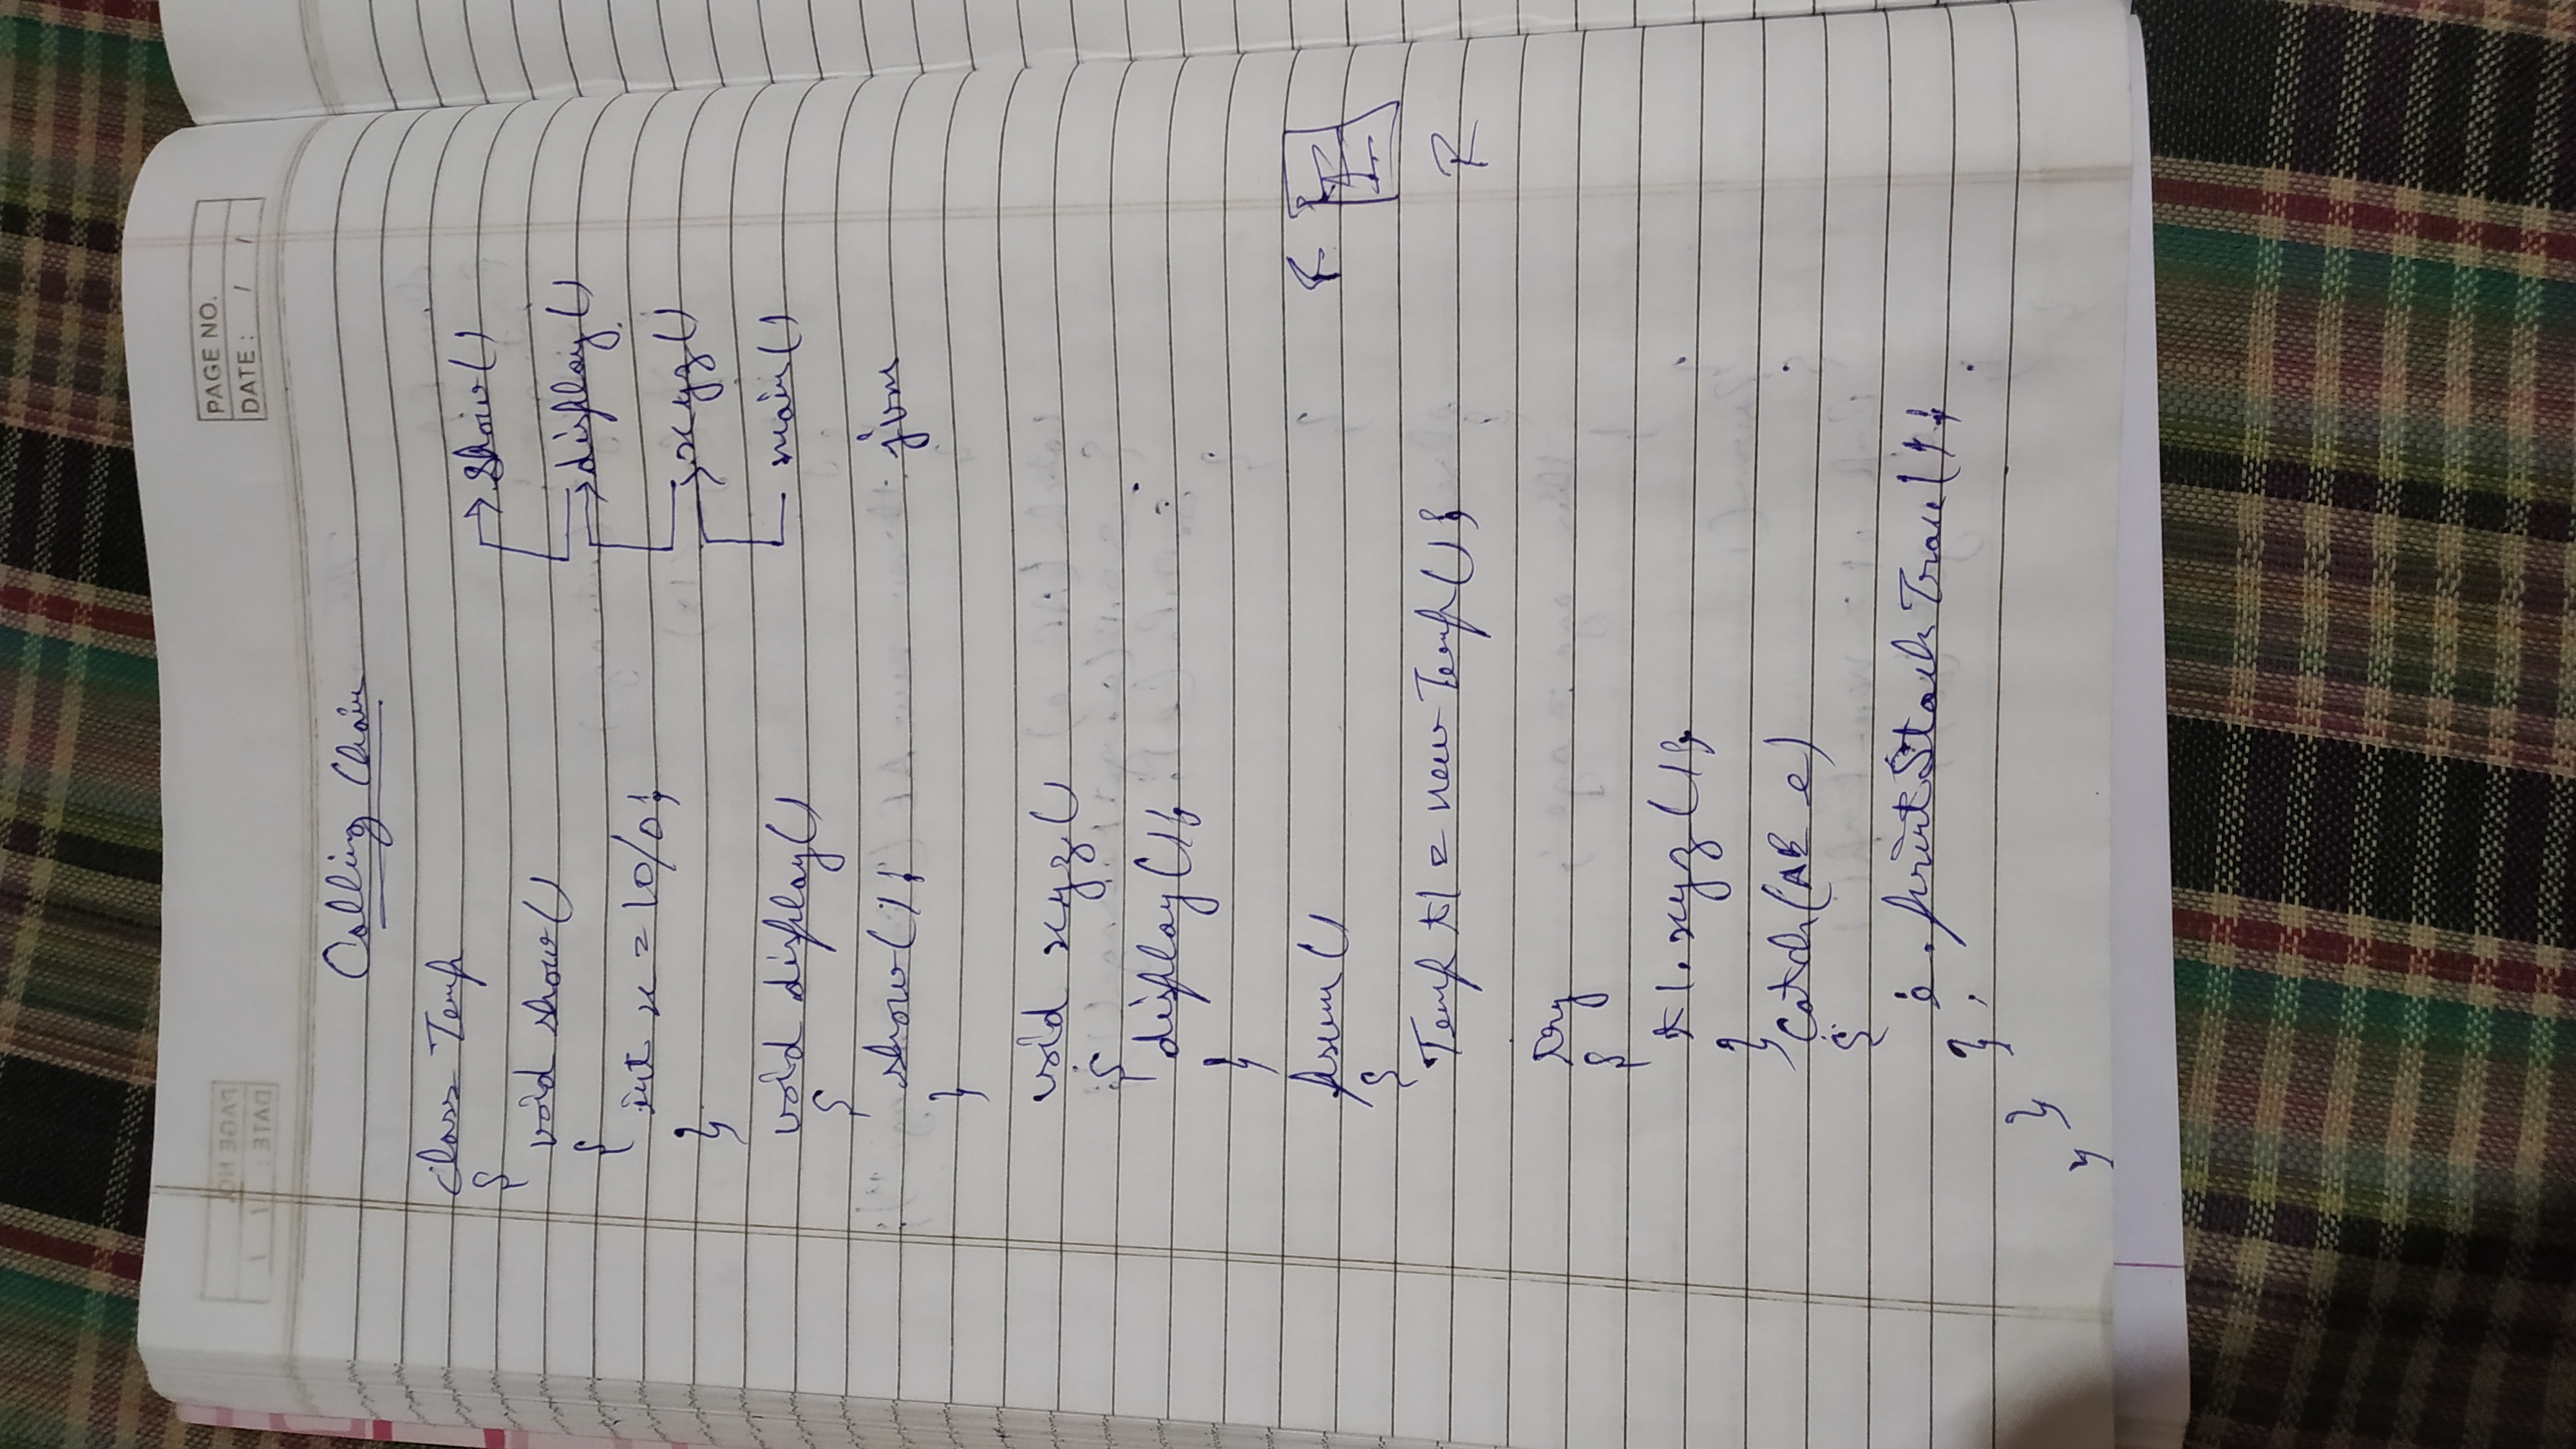 PAGE NO.
DATE: / /
Calling Chain
class Temp
{
void show()
{
int x = 10/0;
}
void display()
{
show();
}
void xyz()
{
display();
}
psvm()
{
Temp t1 = new Temp();
try
{
t1.xyz();
}
catch(AE e)
{
e.printStackTrace();
}
}
}
show()
display()
xyz()
main()
jvm